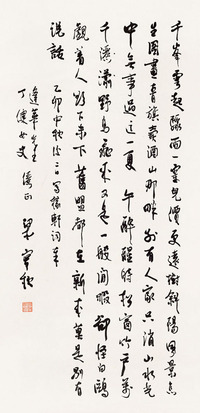 千峯雲起驟雨一霎兒價更遠樹斜陽風景怎
生圖畫青旗賣酒山那畔別有人家只消山水光
中無事過這一夏午醉醒時松窗竹戶萬
千瀟灑野鳥飛來又是一般閒暇卻怪白鷗
覷着人欲下未下舊盟都在新來莫是別有
說話
乙卯中秋後二日寫稼軒詞
蓬華先生
丁健女史 儷正 梁實秋